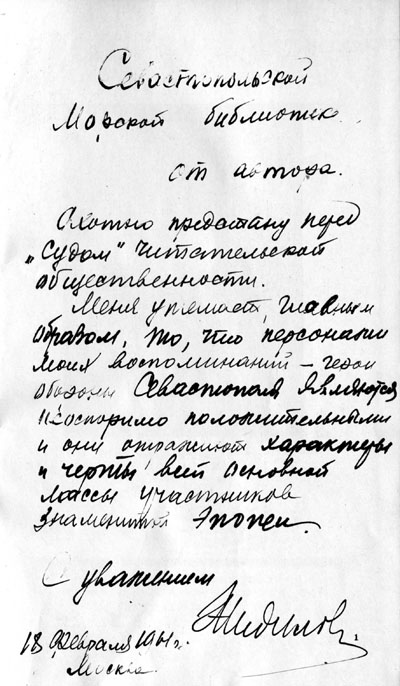 Севастопольской
Морской библиотеке
от автора.
Охотно предстану перед
„судом" читательской
общественности.
Меня утешает, главным
образом, то, что персонажи
моих воспоминаний – герои
обороны Севастополя являются
неоспоримо положительными
и они отражают характеры
и черты всей основной
массы участников
знаменитой Эпопеи.
С уважением
18 февраля 1961 г.
Москва.